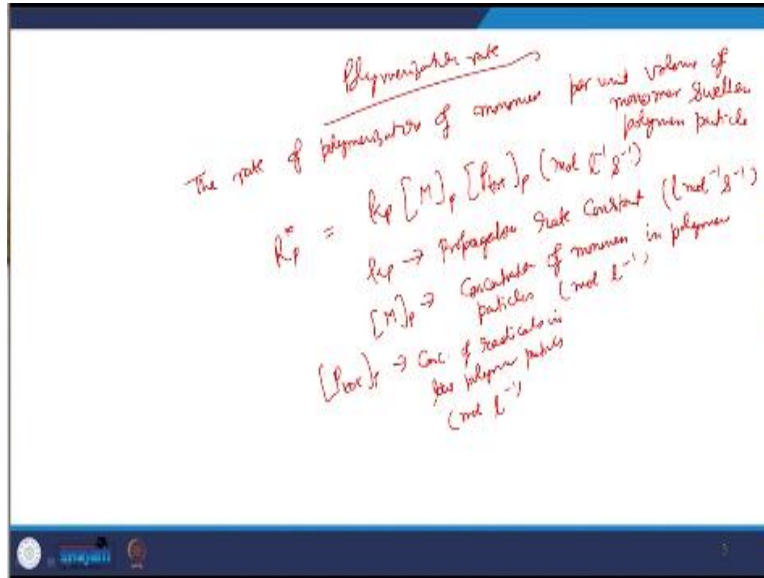 Polymerization rate
The rate of polymerization of monomer per unit volume of
monomer swollen
polymer particle
Rp* = kp [M]p [Ptot]p (mol l⁻¹ s⁻¹)
kp → Propagation rate constant (l mol⁻¹ s⁻¹)
[M]p → Concentration of monomer in polymer
particles (mol l⁻¹)
[Ptot]p → Conc. of radicals in
polymer particles
(mol l⁻¹)
swayam